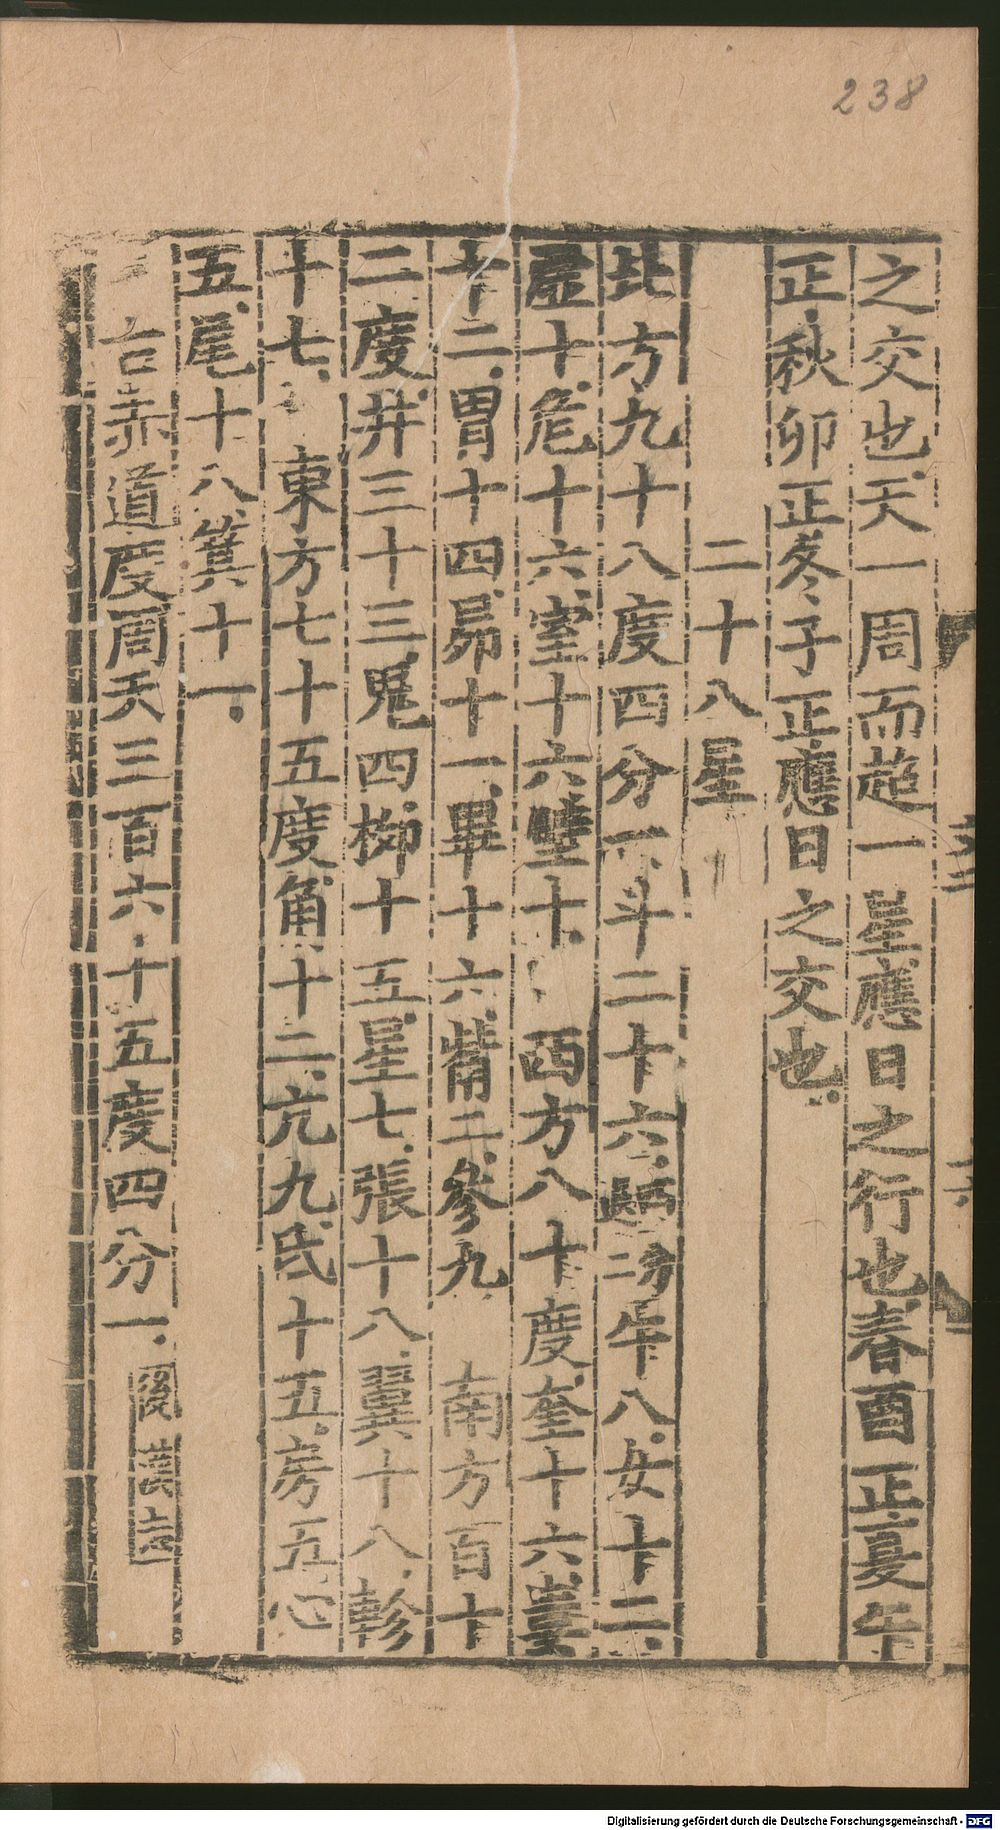 238
之交也天一周而超一星應日之行也春酉正夏午
正秋卯正冬子正應日之交也
二十八星
北方九十八度四分一斗二十六牛八女十二
虛十危十六室十六壁十 西方八十度奎十六婁
十二胃十四昴十一畢十六觜二參九 南方百十
二度井三十三鬼四柳十五星七張十八翼十八軫
十七 東方七十五度角十二亢九氐十五房五心
五尾十八箕十一
右赤道度周天三百六十五度四分一 後漢志
Digitalisierung gefördert durch die Deutsche Forschungsgemeinschaft - DFG